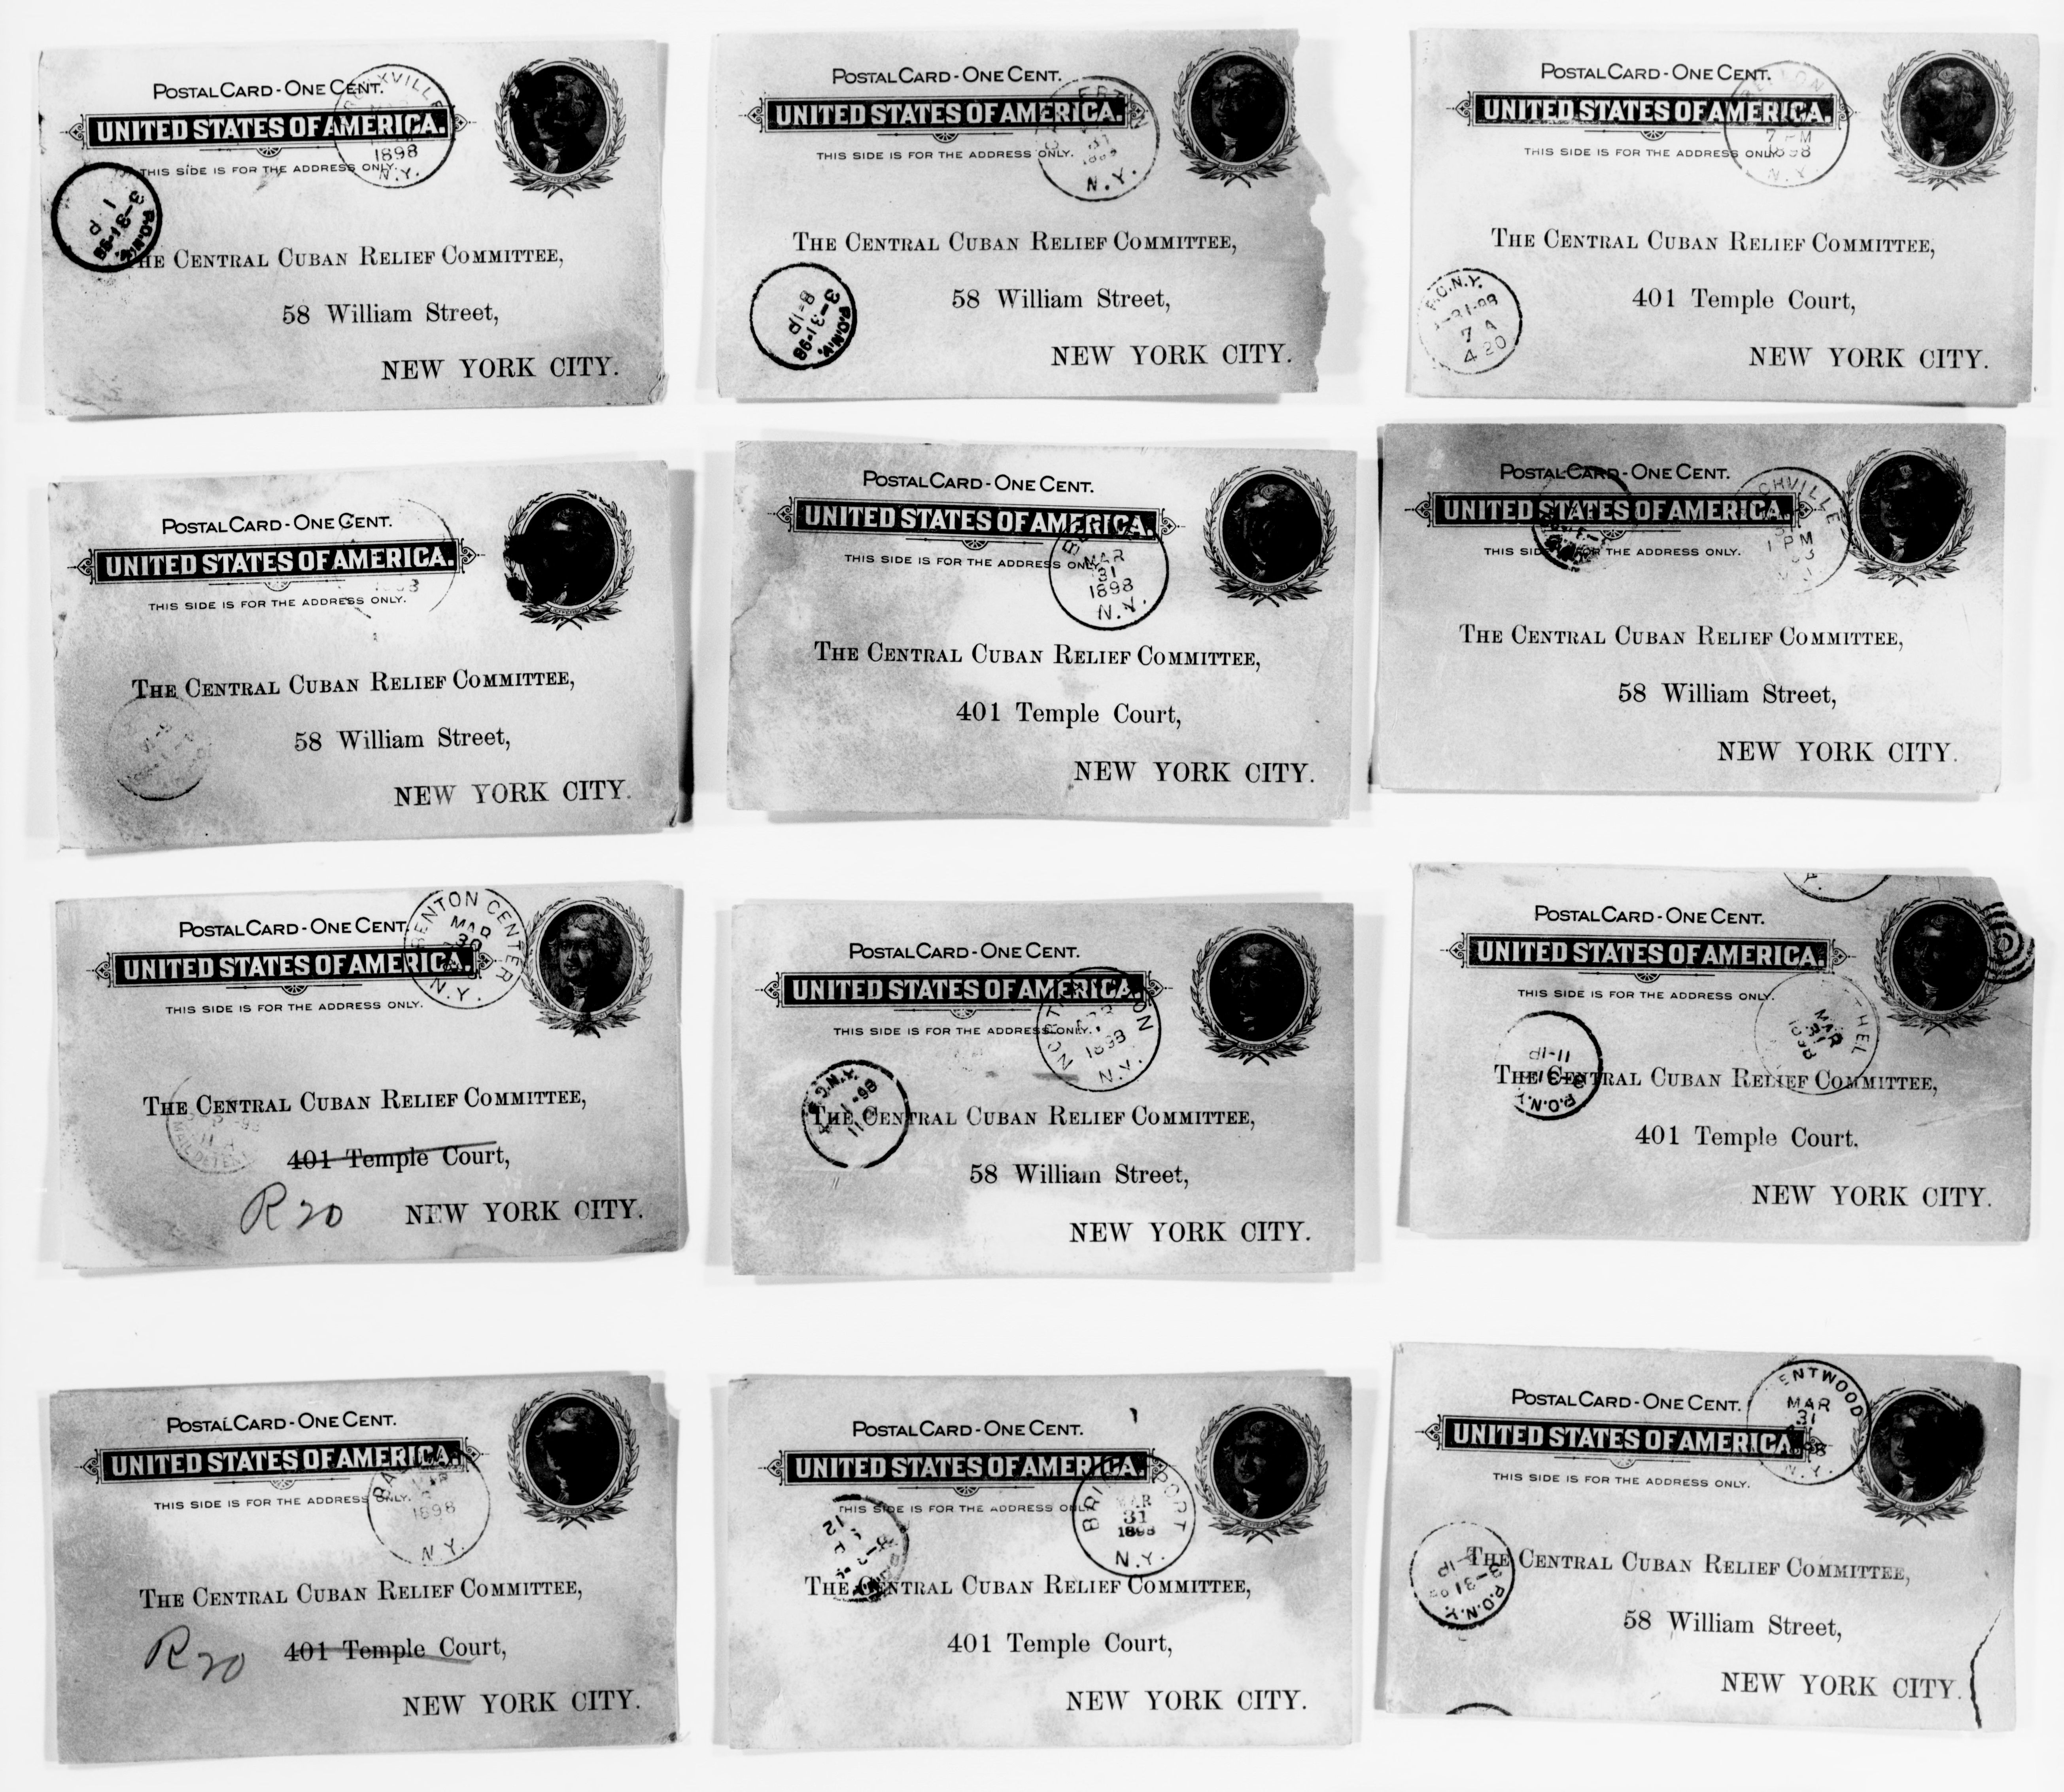 POSTAL CARD - ONE CENT.
UNITED STATES OF AMERICA.
THIS SIDE IS FOR THE ADDRESS ONLY.
1898
N.Y.
3-31-98
1 P
THE CENTRAL CUBAN RELIEF COMMITTEE,
58 William Street,
NEW YORK CITY.
POSTAL CARD - ONE CENT.
UNITED STATES OF AMERICA.
THIS SIDE IS FOR THE ADDRESS ONLY.
31
N.Y.
THE CENTRAL CUBAN RELIEF COMMITTEE,
P.O.N.Y.
3-31-98
8-1P
58 William Street,
NEW YORK CITY.
POSTAL CARD - ONE CENT.
UNITED STATES OF AMERICA.
THIS SIDE IS FOR THE ADDRESS ONLY.
7 PM
1898
N.Y.
THE CENTRAL CUBAN RELIEF COMMITTEE,
P.O.N.Y.
7 A
4 20
401 Temple Court,
NEW YORK CITY.
POSTAL CARD - ONE CENT.
UNITED STATES OF AMERICA.
THIS SIDE IS FOR THE ADDRESS ONLY.
THE CENTRAL CUBAN RELIEF COMMITTEE,
58 William Street,
NEW YORK CITY.
POSTAL CARD - ONE CENT.
UNITED STATES OF AMERICA.
THIS SIDE IS FOR THE ADDRESS ONLY.
MAR
31
1898
N.Y.
THE CENTRAL CUBAN RELIEF COMMITTEE,
401 Temple Court,
NEW YORK CITY.
POSTAL CARD - ONE CENT.
UNITED STATES OF AMERICA.
THIS SIDE IS FOR THE ADDRESS ONLY.
1 PM
THE CENTRAL CUBAN RELIEF COMMITTEE,
58 William Street,
NEW YORK CITY.
POSTAL CARD - ONE CENT.
BENTON CENTER
MAR
30
N.Y.
UNITED STATES OF AMERICA.
THIS SIDE IS FOR THE ADDRESS ONLY.
THE CENTRAL CUBAN RELIEF COMMITTEE,
401 Temple Court,
R 20
NEW YORK CITY.
POSTAL CARD - ONE CENT.
UNITED STATES OF AMERICA.
THIS SIDE IS FOR THE ADDRESS ONLY.
1898
N.Y.
P.O.N.Y.
THE CENTRAL CUBAN RELIEF COMMITTEE,
58 William Street,
NEW YORK CITY.
POSTAL CARD - ONE CENT.
UNITED STATES OF AMERICA.
THIS SIDE IS FOR THE ADDRESS ONLY.
MAR
31
1898
11-1P
P.O.N.Y.
THE CENTRAL CUBAN RELIEF COMMITTEE,
401 Temple Court.
NEW YORK CITY.
POSTAL CARD - ONE CENT.
UNITED STATES OF AMERICA.
THIS SIDE IS FOR THE ADDRESS ONLY.
1898
N.Y.
THE CENTRAL CUBAN RELIEF COMMITTEE,
R 20
401 Temple Court,
NEW YORK CITY.
POSTAL CARD - ONE CENT.
UNITED STATES OF AMERICA.
THIS SIDE IS FOR THE ADDRESS ONLY.
MAR
31
1898
N.Y.
THE CENTRAL CUBAN RELIEF COMMITTEE,
401 Temple Court,
NEW YORK CITY.
POSTAL CARD - ONE CENT.
MAR
31
N.Y.
UNITED STATES OF AMERICA.
THIS SIDE IS FOR THE ADDRESS ONLY.
THE CENTRAL CUBAN RELIEF COMMITTEE,
P.O.N.Y.
58 William Street,
NEW YORK CITY.